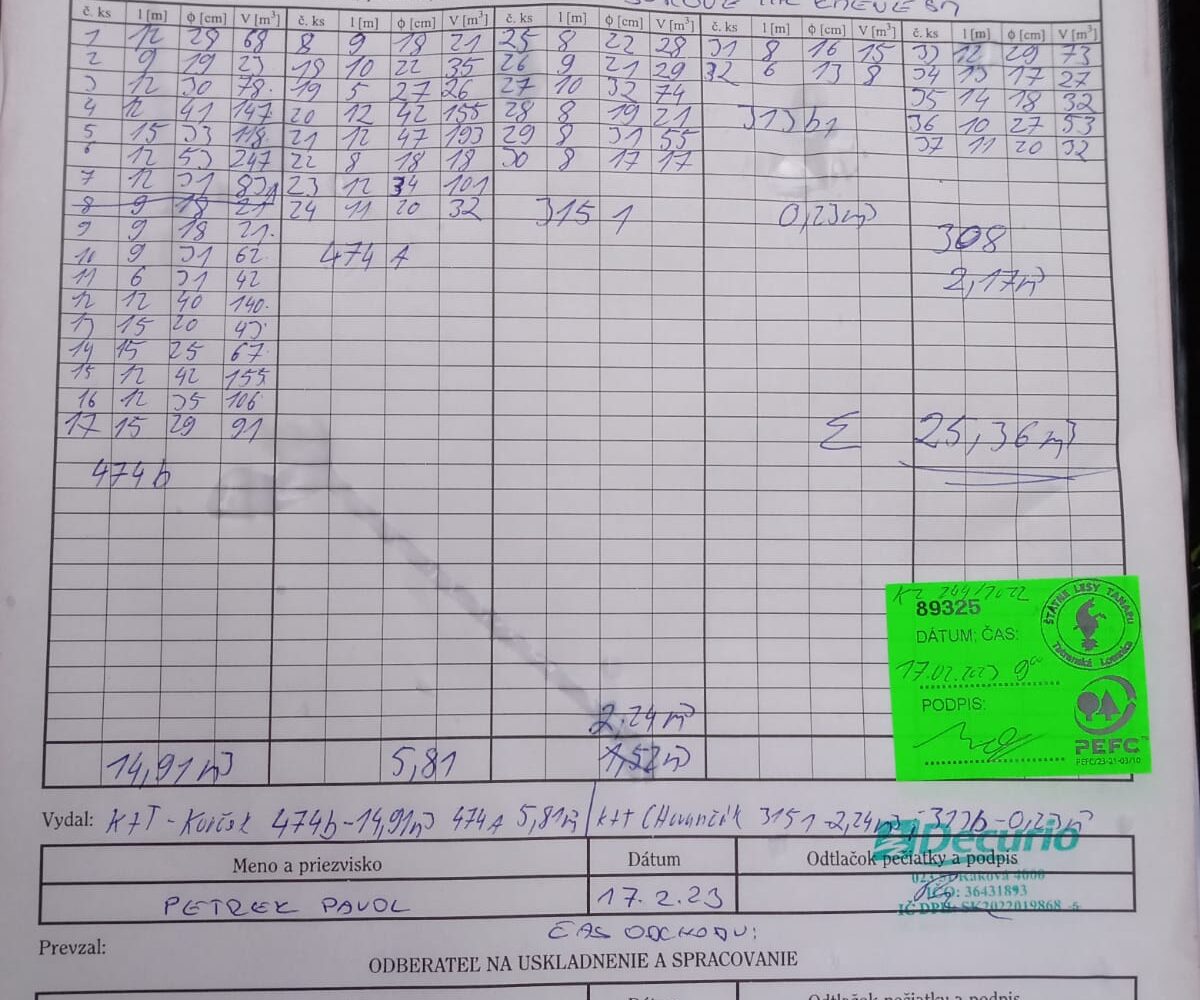 č. ks l [m] ϕ [cm] V [m³] č. ks l [m] ϕ [cm] V [m³] č. ks l [m] ϕ [cm] V [m³] č. ks l [m] ϕ [cm] V [m³] č. ks l [m] ϕ [cm] V [m³]
1 12 28 68 8 9 18 21 25 8 22 28 31 8 16 15 33 12 29 73
2 9 19 23 18 10 22 35 26 9 21 29 32 6 13 8 34 13 17 27
3 12 30 78 19 5 27 26 27 10 32 74 35 14 18 32
4 12 41 147 20 12 42 155 28 8 19 21 313b1 36 10 27 53
5 15 33 118 21 12 47 193 29 8 31 55 37 11 20 32
6 12 53 247 22 8 18 18 30 8 17 17
7 12 31 83 23 12 34 101
8 9 18 21 24 11 20 32 315 1 0,23m³
9 9 18 21 308
10 9 31 62 474 A
11 6 31 42 2,17m³
12 12 40 140
13 15 20 43
14 15 25 67
15 12 42 155
16 12 35 106
17 15 29 91 Σ 25,36m³
474b
KZ 249/2022
89325
ŠTÁTNE LESY TANAPU
Tatranská Lomnica
DÁTUM; ČAS:
17.02.2023 9⁰⁰
PODPIS:
PEFC
PEFC/23-21-03/10
2.24 m³
14,91m³ 5,81 1,52m³
Vydal: K+T - Kurčik 474b-14,91m³ 474A 5,81m³ / k+t 315 1 -2,24m³, 313b-0,23m³
Decurio
Meno a priezvisko Dátum Odtlačok pečiatky a podpis
023 51 Raková 4000
IČO: 36431893
PETREK PAVOL 17.2.23
IČ DPH: SK2022019868 -5-
ČAS ODCHODU:
Prevzal:
ODBERATEĽ NA USKLADNENIE A SPRACOVANIE
Odtlačok pečiatky a podpis